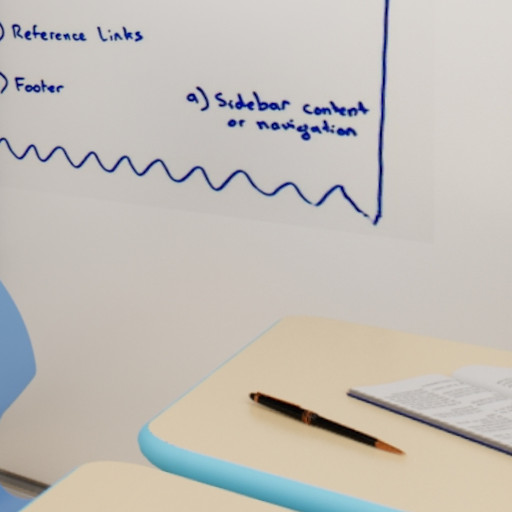 ) Reference Links
) Footer
a) Sidebar content
or navigation